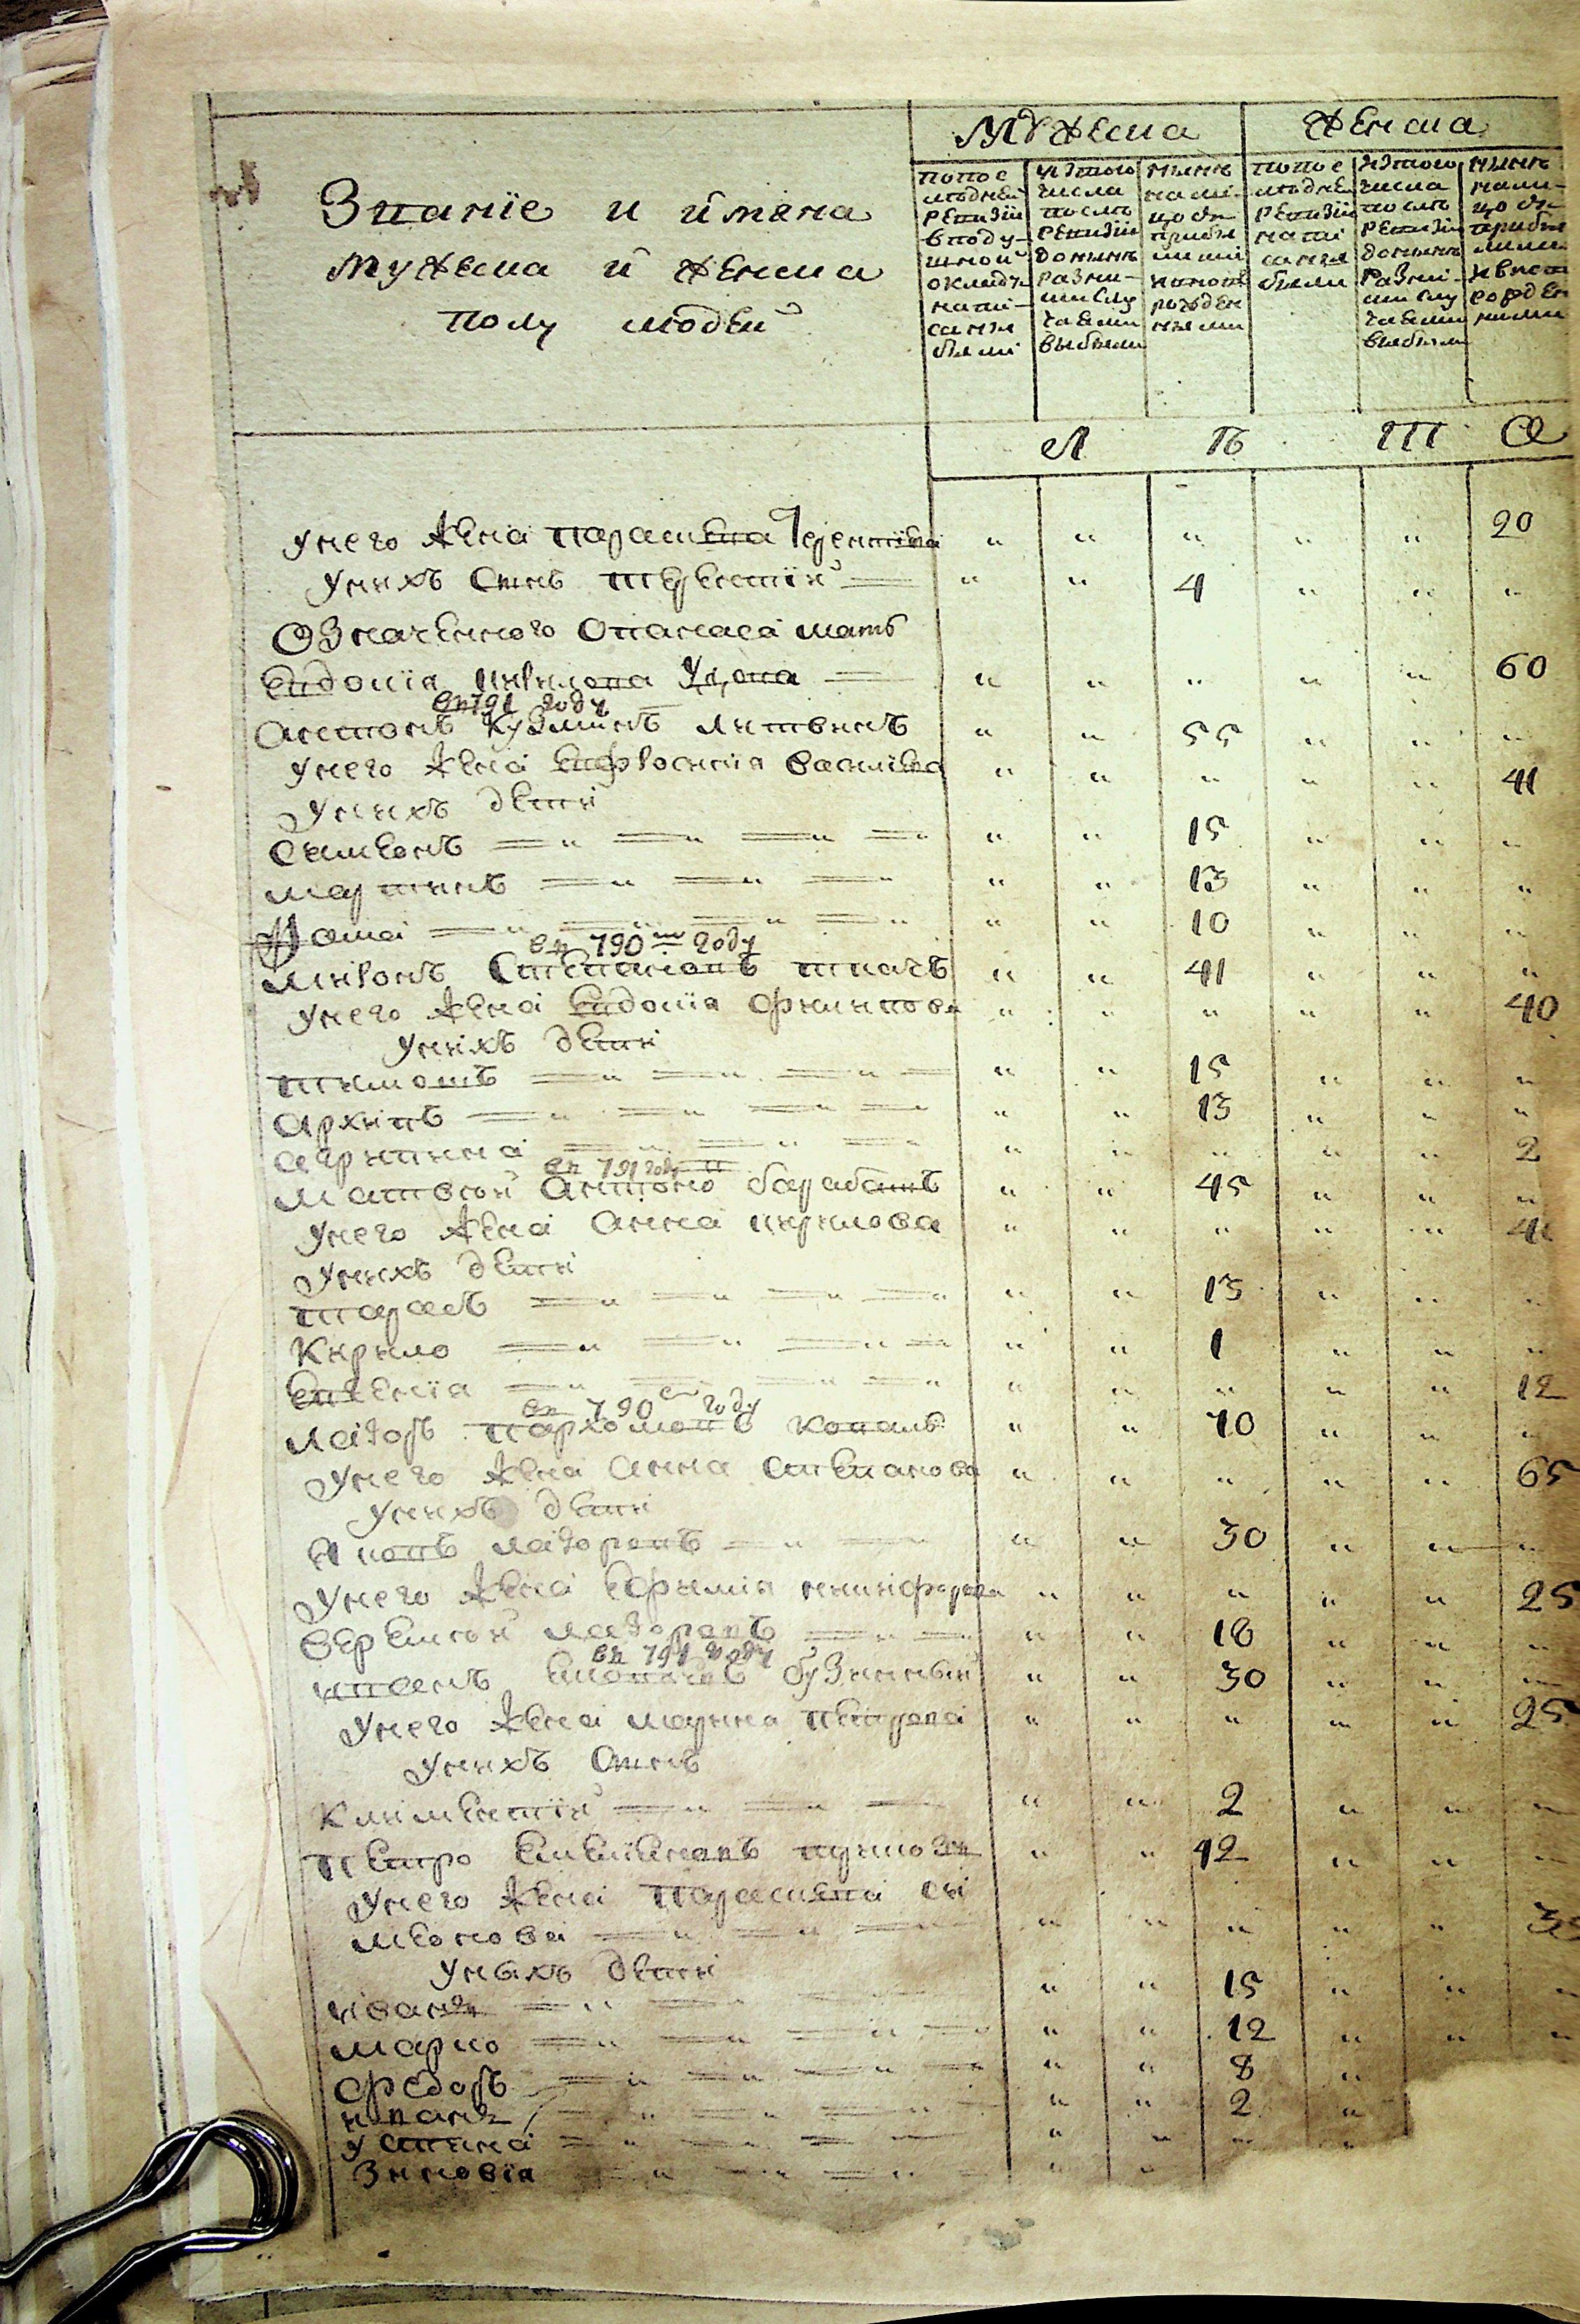 Мужеска Женска
Звание и имена
мужеска и женска
полу людей
по последней ревизии в подушной окладе написаны были
из того числа после ревизии до ныне разними случаями выбыли
ныне на лицо с прибылими и новорожденными
по последней ревизии написаны были
из того числа после ревизии до ныне разними случаями выбыли
ныне на лицо с прибылими и вновь рожденними
Л П Т
у него жена параскева Терентиева " " " " " 20
у них сын терентий " " 4 " " "
Означенного опанаса мать
евдокия кирилова удова " " " " " 60
в 791 году
антон Кузмин литвин " " 55 " " "
у него жена ефросиния василиева " " " " " 41
у них дети
симион " " 15 " " "
мартин " " 13 " " "
Фома " " 10 " " "
в 790м году
мирон Степанов ткач " " 41 " " "
у него жена евдокия филипова " " " " " 40
у них дети
тимош " " 15 " " "
архип " " 13 " " "
агрипина " " " " " 2
в 791 году
матвей антоно барабаш " " 45 " " "
у него жена анна кирилова " " " " "
у них дети
тарас " " 13 " " "
Кирило " " 1 " " "
евгения " " " " " 12
в 790 году
лазор пархомов коваль " " 70 " " "
у него жена анна степанова " " " " " 65
у них дети
яков лазорев " " 30 " " "
у него жена ефимия никифорова " " " " " 25
веремей лазорев " " 18 " " "
в 791 году
" " 30 " " "
у него жена марина петрова " " " " " 25
у них сын
климентий " " 2 " " "
петро " " 42 " " "
у него жена параскева си
меонова " " " " "
у них дети
иван " " 15 " " "
марко " " 12 " " "
федор " " 8 "
иван " " 2 "
устина " " " "
Зиновия " "